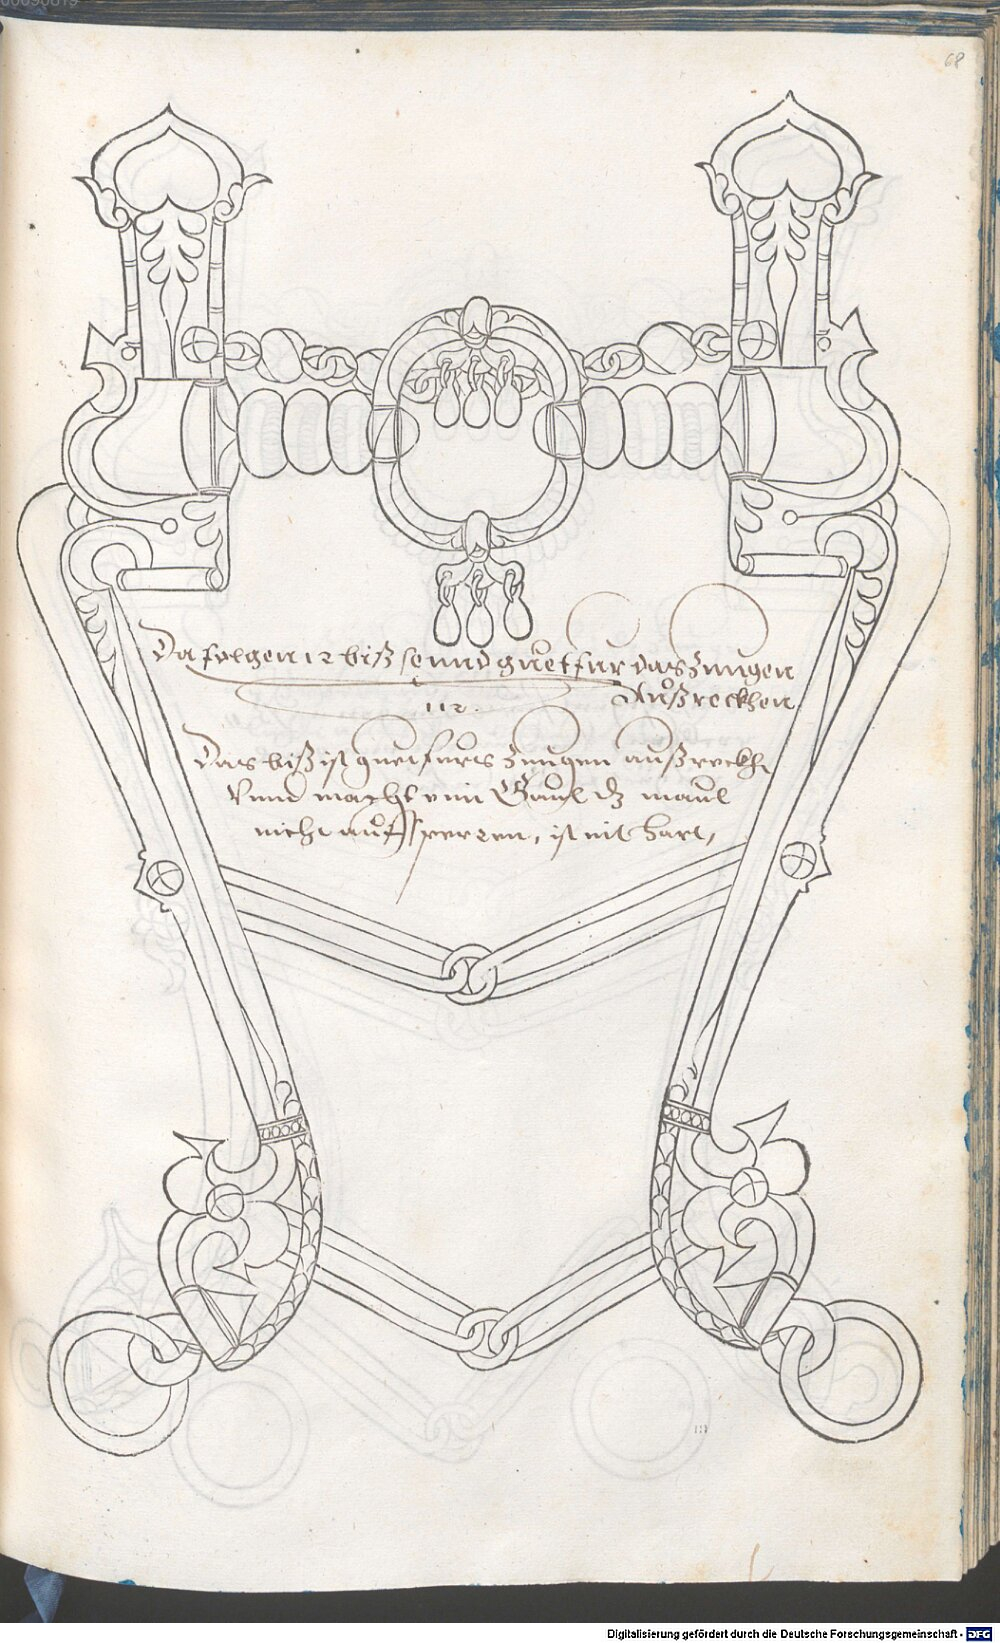 68
Da folgen 12 biß seund guet fur das Zungen
Außreckhen
112.
Das biß ist guet furs Zungen außreckh
Vnnd macht ein Gaul dz maul
nicht auf sperren, ist nit hart,
Digitalisierung gefördert durch die Deutsche Forschungsgemeinschaft - DFG